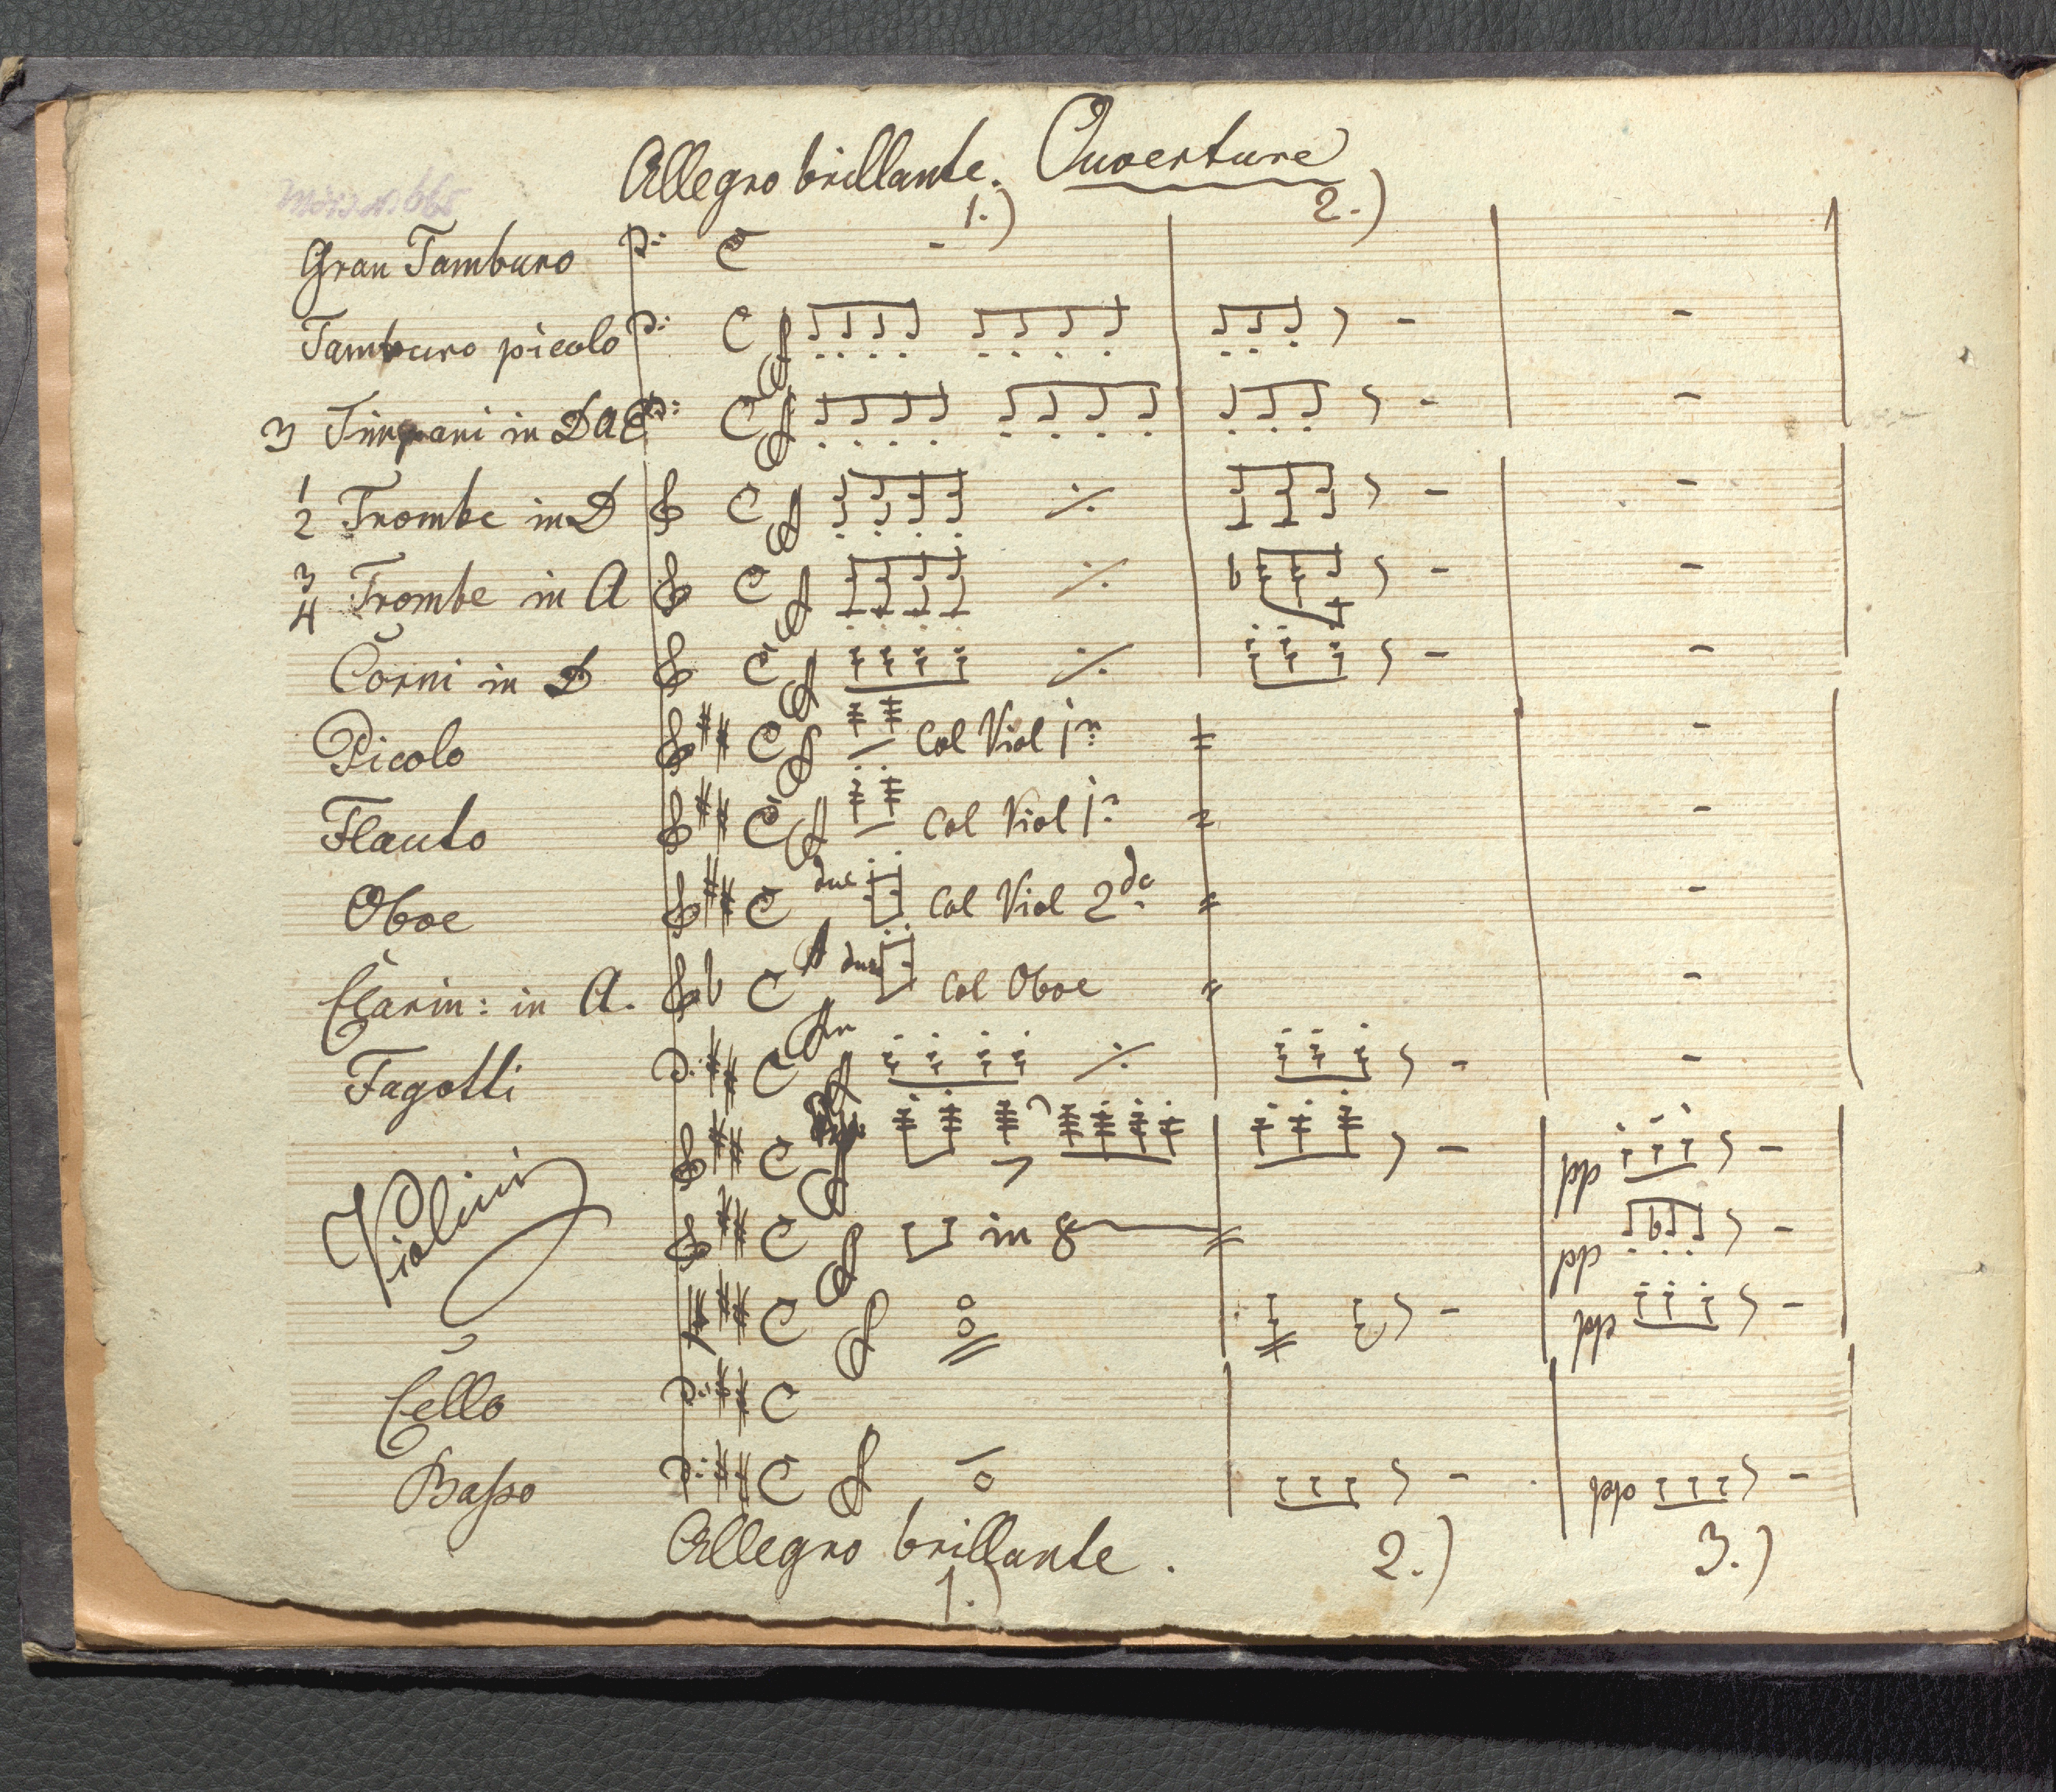 Allegro brillante. Ouverture
1.) 2.)
Gran Tamburo
Tamburo picolo
3 Timpani in D A E
1 2 Trombe in D
3 4 Trombe in A
Corni in D
Picolo Col Viol 1º
Flauto Col Viol 1º
Oboe due Col Viol 2do
Clarin: in A. due Col Oboe
Fagotti
pp
Violini in 8 pp
pp
Cello
Baſso pp
Allegro brillante. 2.) 3.)
1.)